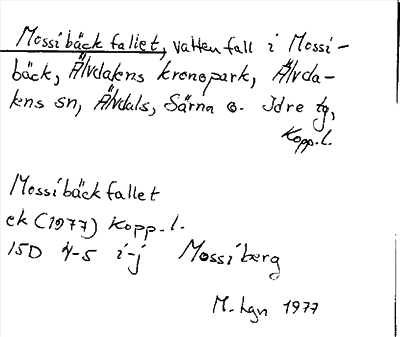 Mossibäckfallet, vattenfall i Mossi-
bäck, Älvdalens kronopark, Älvda-
lens sn, Älvdals, Särna o. Idre tg,
Kopp.l.
Mossibäckfallet
ek (1977) Kopp.l.
15D 4-5 i-j Mossiberg
M.Lgn 1977